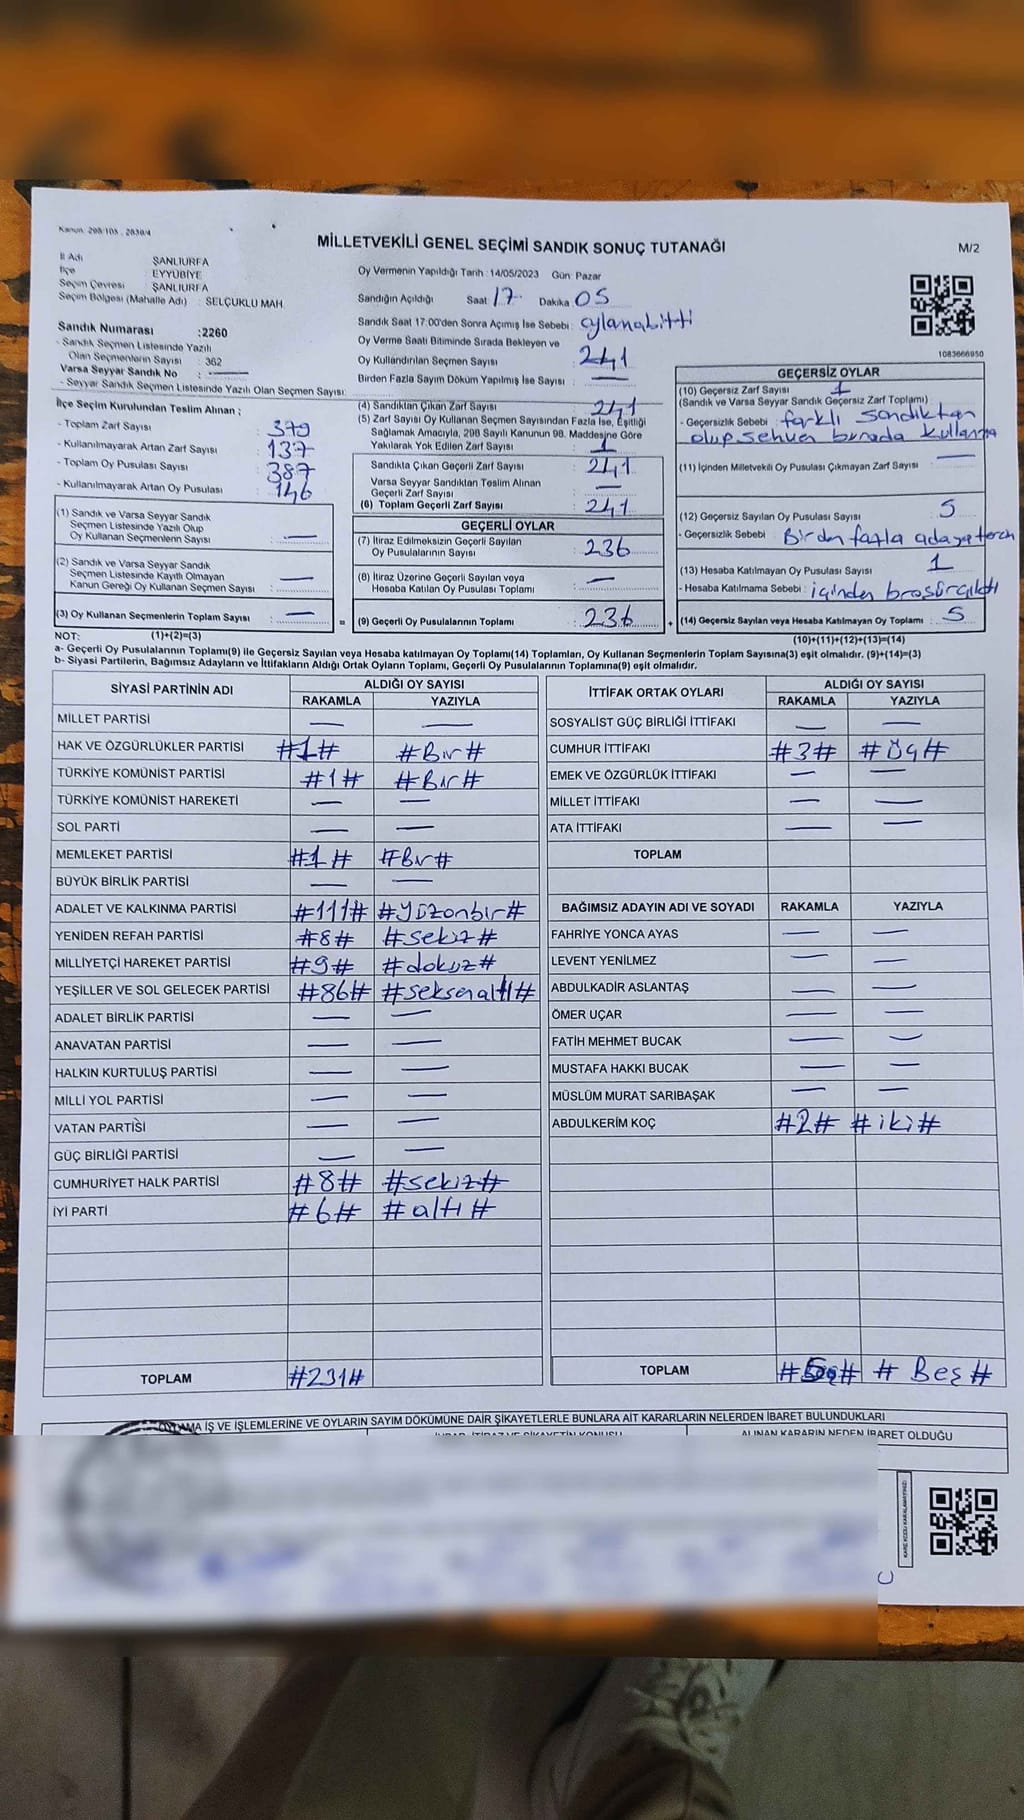 Kanun: 298/105 , 2839/4
MİLLETVEKİLİ GENEL SEÇİMİ SANDIK SONUÇ TUTANAĞI
M/2
İl Adı : ŞANLIURFA
İlçe : EYYÜBİYE
Seçim Çevresi : ŞANLIURFA
Seçim Bölgesi (Mahalle Adı) : SELÇUKLU MAH
Sandık Numarası :2260
- Sandık Seçmen Listesinde Yazılı
Olan Seçmenlerin Sayısı : 362
Varsa Seyyar Sandık No : —
- Seyyar Sandık Seçmen Listesinde Yazılı Olan Seçmen Sayısı:
Oy Vermenin Yapıldığı Tarih :14/05/2023 Gün: Pazar
Sandığın Açıldığı Saat 17 Dakika 05
Sandık Saat 17:00'den Sonra Açımış İse Sebebi :
Oy Verme Saati Bitiminde Sırada Bekleyen ve
Oy Kullandırılan Seçmen Sayısı : 241
Birden Fazla Sayım Döküm Yapılmış İse Sayısı : —
1083666950
İlçe Seçim Kurulundan Teslim Alınan ;
- Toplam Zarf Sayısı : 379
- Kullanılmayarak Artan Zarf Sayısı : 137
- Toplam Oy Pusulası Sayısı : 387
- Kullanılmayarak Artan Oy Pusulası : 146
(1) Sandık ve Varsa Seyyar Sandık
Seçmen Listesinde Yazılı Olup
Oy Kullanan Seçmenlerin Sayısı : —
(2) Sandık ve Varsa Seyyar Sandık
Seçmen Listesinde Kayıtlı Olmayan
Kanun Gereği Oy Kullanan Seçmen Sayısı : —
(3) Oy Kullanan Seçmenlerin Toplam Sayısı : — =
(4) Sandıktan Çıkan Zarf Sayısı : 241
(5) Zarf Sayısı Oy Kullanan Seçmen Sayısından Fazla İse, Eşitliği
Sağlamak Amacıyla, 298 Sayılı Kanunun 98. Maddesine Göre
Yakılarak Yok Edilen Zarf Sayısı : 1
Sandıkta Çıkan Geçerli Zarf Sayısı : 241
Varsa Seyyar Sandıktan Teslim Alınan
Geçerli Zarf Sayısı : —
(6) Toplam Geçerli Zarf Sayısı : 241
GEÇERLİ OYLAR
(7) İtiraz Edilmeksizin Geçerli Sayılan
Oy Pusulalarının Sayısı : 236
(8) İtiraz Üzerine Geçerli Sayılan veya
Hesaba Katılan Oy Pusulası Toplamı : —
(9) Geçerli Oy Pusulalarının Toplamı : 236 +
GEÇERSİZ OYLAR
(10) Geçersiz Zarf Sayısı : 1
(Sandık ve Varsa Seyyar Sandık Geçersiz Zarf Toplamı)
- Geçersizlik Sebebi : farklı sandıktan
olup sehven burada
(11) İçinden Milletvekili Oy Pusulası Çıkmayan Zarf Sayısı : —
(12) Geçersiz Sayılan Oy Pusulası Sayısı : 5
- Geçersizlik Sebebi : Birden fazla adaya
(13) Hesaba Katılmayan Oy Pusulası Sayısı : 1
- Hesaba Katılmama Sebebi : içinden broşür çıktı
(14) Geçersiz Sayılan veya Hesaba Katılmayan Oy Toplamı : 5
NOT: (1)+(2)=(3) (10)+(11)+(12)+(13)=(14)
a- Geçerli Oy Pusulalarının Toplamı(9) ile Geçersiz Sayılan veya Hesaba katılmayan Oy Toplamı(14) Toplamları, Oy Kullanan Seçmenlerin Toplam Sayısına(3) eşit olmalıdır. (9)+(14)=(3)
b- Siyasi Partilerin, Bağımsız Adayların ve İttifakların Aldığı Ortak Oyların Toplamı, Geçerli Oy Pusulalarının Toplamına(9) eşit olmalıdır.
SİYASİ PARTİNİN ADI ALDIĞI OY SAYISI
RAKAMLA YAZIYLA
MİLLET PARTİSİ — —
HAK VE ÖZGÜRLÜKLER PARTİSİ #1# #Bir#
TÜRKİYE KOMÜNİST PARTİSİ #1# #Bir#
TÜRKİYE KOMÜNİST HAREKETİ — —
SOL PARTİ — —
MEMLEKET PARTİSİ #1# #Bir#
BÜYÜK BİRLİK PARTİSİ — —
ADALET VE KALKINMA PARTİSİ #111# #Yüzonbir#
YENİDEN REFAH PARTİSİ #8# #sekiz#
MİLLİYETÇİ HAREKET PARTİSİ #9# #dokuz#
YEŞİLLER VE SOL GELECEK PARTİSİ #86# #seksenaltı#
ADALET BİRLİK PARTİSİ — —
ANAVATAN PARTİSİ — —
HALKIN KURTULUŞ PARTİSİ — —
MİLLİ YOL PARTİSİ — —
VATAN PARTİSİ — —
GÜÇ BİRLİĞİ PARTİSİ — —
CUMHURİYET HALK PARTİSİ #8# #sekiz#
İYİ PARTİ #6# #altı#
TOPLAM #231#
İTTİFAK ORTAK OYLARI ALDIĞI OY SAYISI
RAKAMLA YAZIYLA
SOSYALİST GÜÇ BİRLİĞİ İTTİFAKI — —
CUMHUR İTTİFAKI #3# #üç#
EMEK VE ÖZGÜRLÜK İTTİFAKI — —
MİLLET İTTİFAKI — —
ATA İTTİFAKI — —
TOPLAM
BAĞIMSIZ ADAYIN ADI VE SOYADI RAKAMLA YAZIYLA
FAHRİYE YONCA AYAS — —
LEVENT YENİLMEZ — —
ABDULKADİR ASLANTAŞ — —
ÖMER UÇAR — —
FATİH MEHMET BUCAK — —
MUSTAFA HAKKI BUCAK — —
MÜSLÜM MURAT SARIBAŞAK — —
ABDULKERİM KOÇ #2# #iki#
TOPLAM #5# # Beş #
OYLAMA İŞ VE İŞLEMLERİNE VE OYLARIN SAYIM DÖKÜMÜNE DAİR ŞİKAYETLERLE BUNLARA AİT KARARLARIN NELERDEN İBARET BULUNDUKLARI
ALINAN KARARIN NEDEN İBARET OLDUĞU